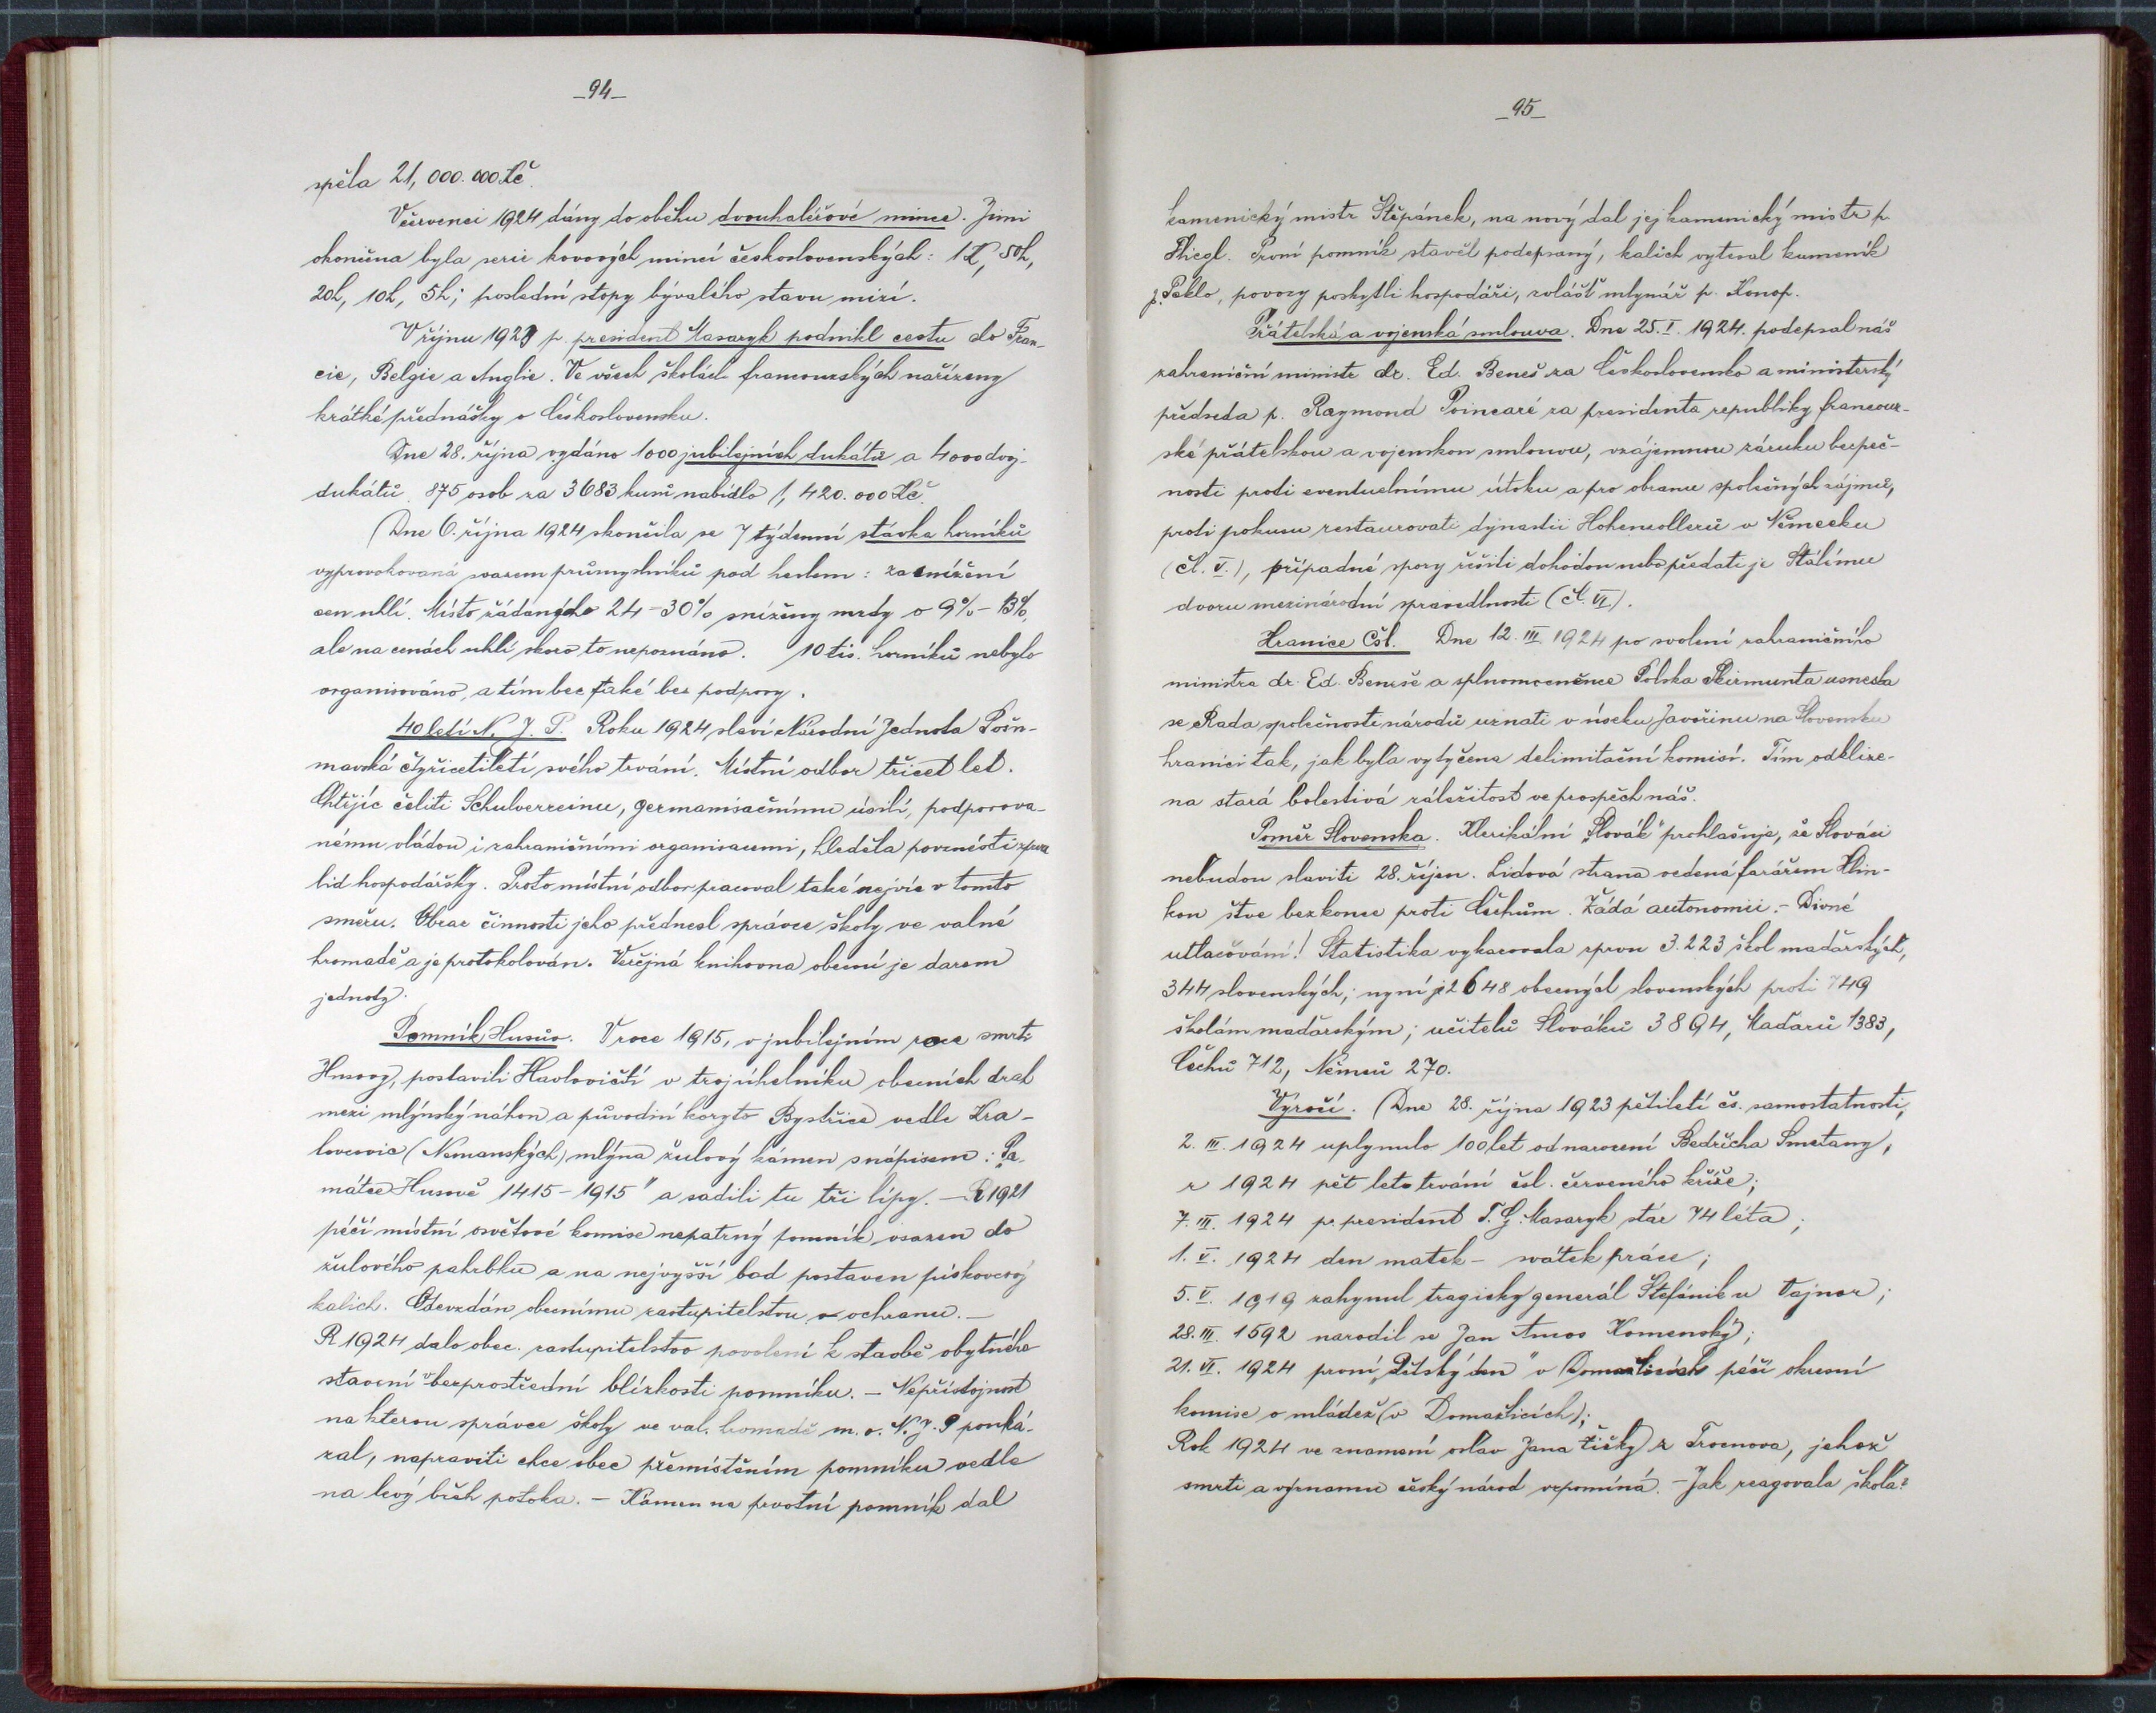 _94_
spěla 21,000.000 Kč.
V červenci 1924 dány do oběhu dvouhaléřové mince. Jimi
skončena byla serie kovových mincí československých: 1K, 50h,
20h, 10h, 5h; poslední stopy bývalého stavu mizí.
V říjnu 1923 p. president Masaryk podnikl cestu do Fran-
cie, Belgie a Anglie. Ve všech školách francouzských nařízeny
krátké přednášky o Československu.
Dne 28. října vydáno 1000 jubilejních dukátů a 4000 dvoj-
dukátů. 875 osob za 3683 kusů nabídlo 1,420.000 Kč.
Dne 6. října 1924 skončila se 7 týdenní stávka horníků
vyprovokovaná svazem průmyslníků pod heslem: za snížení
cen uhlí. Místo žádaných 24-30% sníženy mzdy o 9%-13%,
ale na cenách uhlí skoro to nepoznáno. 10 tis. horníků nebylo
organisováno, a tím bez také bez podpory.
40letí N. J. P. Roku 1924 slaví Národní Jednota Pošu-
mavská čtyřicetiletí svého trvání. Místní odbor třicet let.
Chtějíc čeliti Schulvereinu, germanisačnímu úsilí, podporova-
nému vládou i zahraničními organisacemi, hleděla povznésti zprvu
lid hospodářsky. Proto místní odbor pracoval také nejvíc v tomto
směru. Obraz činnosti jeho přednesl správce školy ve valné
hromadě a je protokolován. Veřejná knihovna obecní je darem
jednoty.
Pomník Husův. V roce 1915, v jubilejním roce smrti
Husovy, postavili Havlovičtí v trojúhelníku obecních drah
mezi mlýnský náhon a původní koryto Bystřice vedle Kra-
lovcovic (Nemanských) mlýna žulový kámen s nápisem: "Pa-
mátce Husově 1415-1915" a sadili tu tři lípy. - R 1921
péčí místní osvětové komise nepatrný pomník osazen do
žulového pahrbku a na nejvyšší bod postaven pískovcový
kalich. Odevzdán obecnímu zastupitelstvu v ochranu. -
R 1924 dalo obec. zastupitelstvo povolení k stavbě obytného
stavení v bezprostřední blízkosti pomníku. - Nepřístojnost
na kterou správce školy ve val. hromadě m. o. N. J. P pouká-
zal, napraviti chce obec přemístěním pomníku vedle
na levý břeh potoka. - Kámen na prvotní pomník dal
_95_
kamenický mistr Štěpánek, na nový dal jej kamenický mistr p.
Fliegl. První pomník stavěl podepsaný, kalich vytesal kameník
J. Peklo, povozy poskytli hospodáři, zvlášť mlynář p. Konop.
Přátelská a vojenská smlouva. Dne 25. I. 1924. podepsal náš
zahraniční ministr dr. Ed. Beneš za Československo a ministerský
předseda p. Raymond Poincaré za presidenta republiky francouz-
ské přátelskou a vojenskou smlouvu, vzájemnou záruku bezpeč-
nosti proti eventuelnímu útoku a pro obranu společných zájmů,
proti pokusu restaurovati dynastii Hohenzollerů v Německu
(čl. V.), případné spory řešiti dohodou nebo předati je Stálému
dvoru mezinárodní spravedlnosti (čl. VI).
Hranice Čsl. Dne 12. III. 1924 po svolení zahraničního
ministra dr. Ed. Beneše a splnomocněnce Polska Skirmunta usnesla
se Rada společnosti národů uznati v úseku Javořinu na Slovensku
hranici tak, jak byla vytyčena delimitační komisí. Tím odklize-
na stará bolestivá záležitost ve prospěch náš.
Poměr Slovenska. Klerikální "Slovák" prohlašuje, že Slováci
nebudou slaviti 28. říjen. Lidová strana vedená farářem Hlin-
kou štve bez konce proti Čechům. Žádá autonomii. - Divné
utlačování! Statistika vykazovala zprvu 3.223 škol maďarských,
344 slovenských; nyní je 2648 obecných slovenských proti 749
školám maďarským; učitelů Slováků 3894, Maďarů 1383,
Čechů 712, Němců 270.
Výročí. Dne 28. října 1923 pětiletí čs. samostatnosti,
2. III. 1924 uplynulo 100 let od narození Bedřicha Smetany,
r 1924 pět let trvání čsl. červeného kříže;
7. III. 1924 p. president T. G. Masaryk stár 74 léta;
1. V. 1924 den matek - svátek práce;
5. V. 1919 zahynul tragicky generál Štefánik u Vajnor;
28. III. 1592 narodil se Jan Amos Komenský;
21. VI. 1924 první "Dětský den" v Domažlicích péčí okresní
komise o mládež (v Domažlicích);
Rok 1924 ve znamení oslav Jana Žižky z Trocnova, jehož
smrti a významu český národ vzpomíná. - Jak reagovala škola?